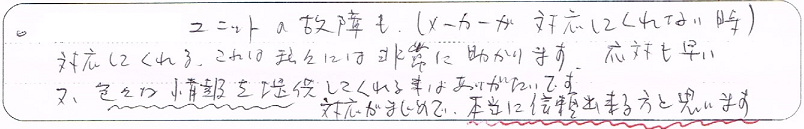 。 ユニットの故障も、(メーカーが対応してくれない時)
対応してくれる、これは我々には非常に助かります。応対も早い
又、色々な情報を提供してくれる事はありがたいです
対応がまじめで、本当に信頼出来る方と思います